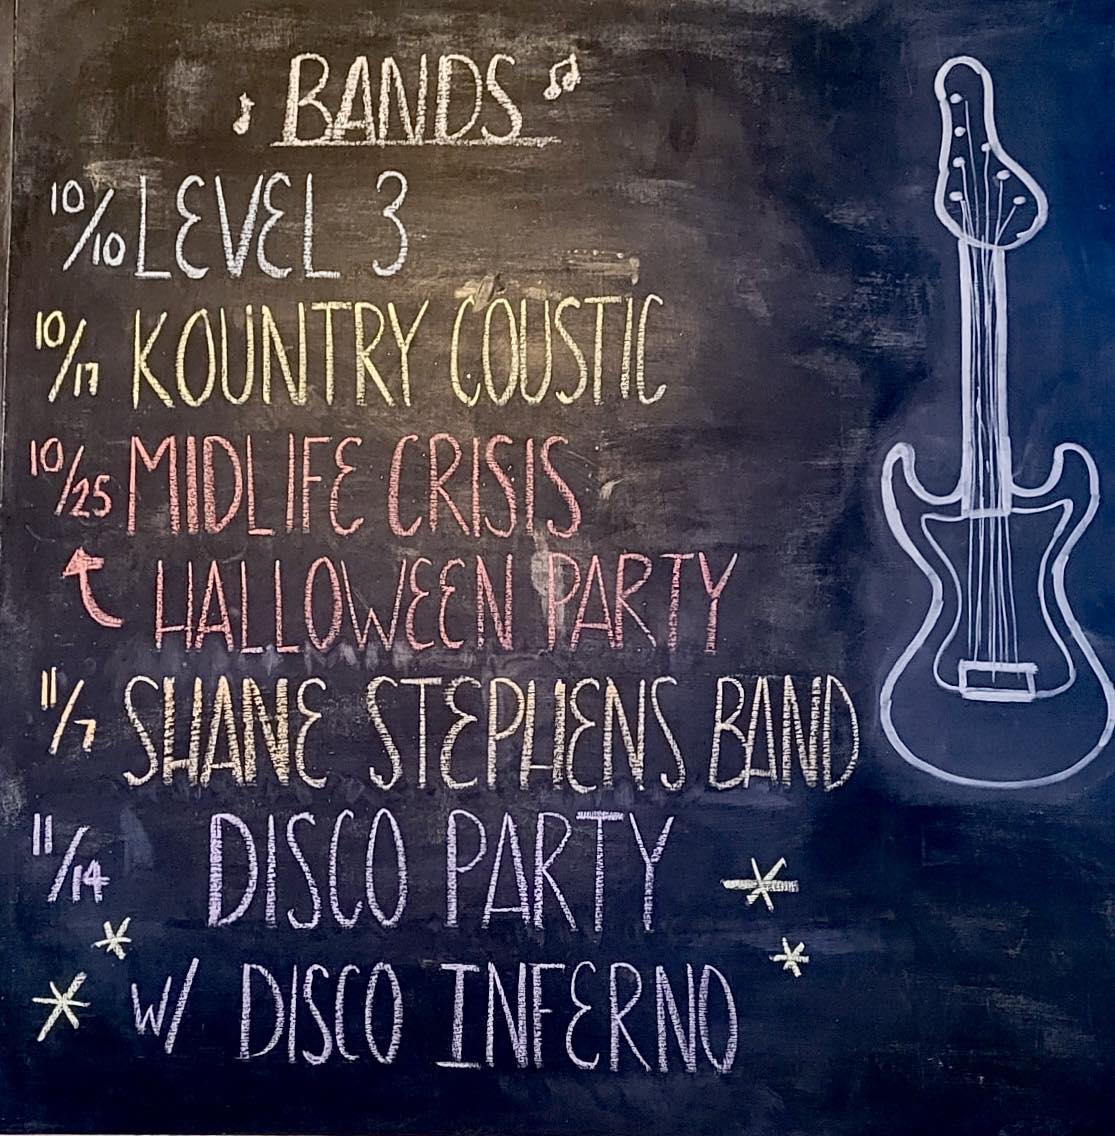 BANDS
10/10 LEVEL 3
10/17 KOUNTRY COUSTIC
10/25 MIDLIFE CRISIS
HALLOWEEN PARTY
11/7 SHANE STEPHENS BAND
11/14 DISCO PARTY
W/ DISCO INFERNO